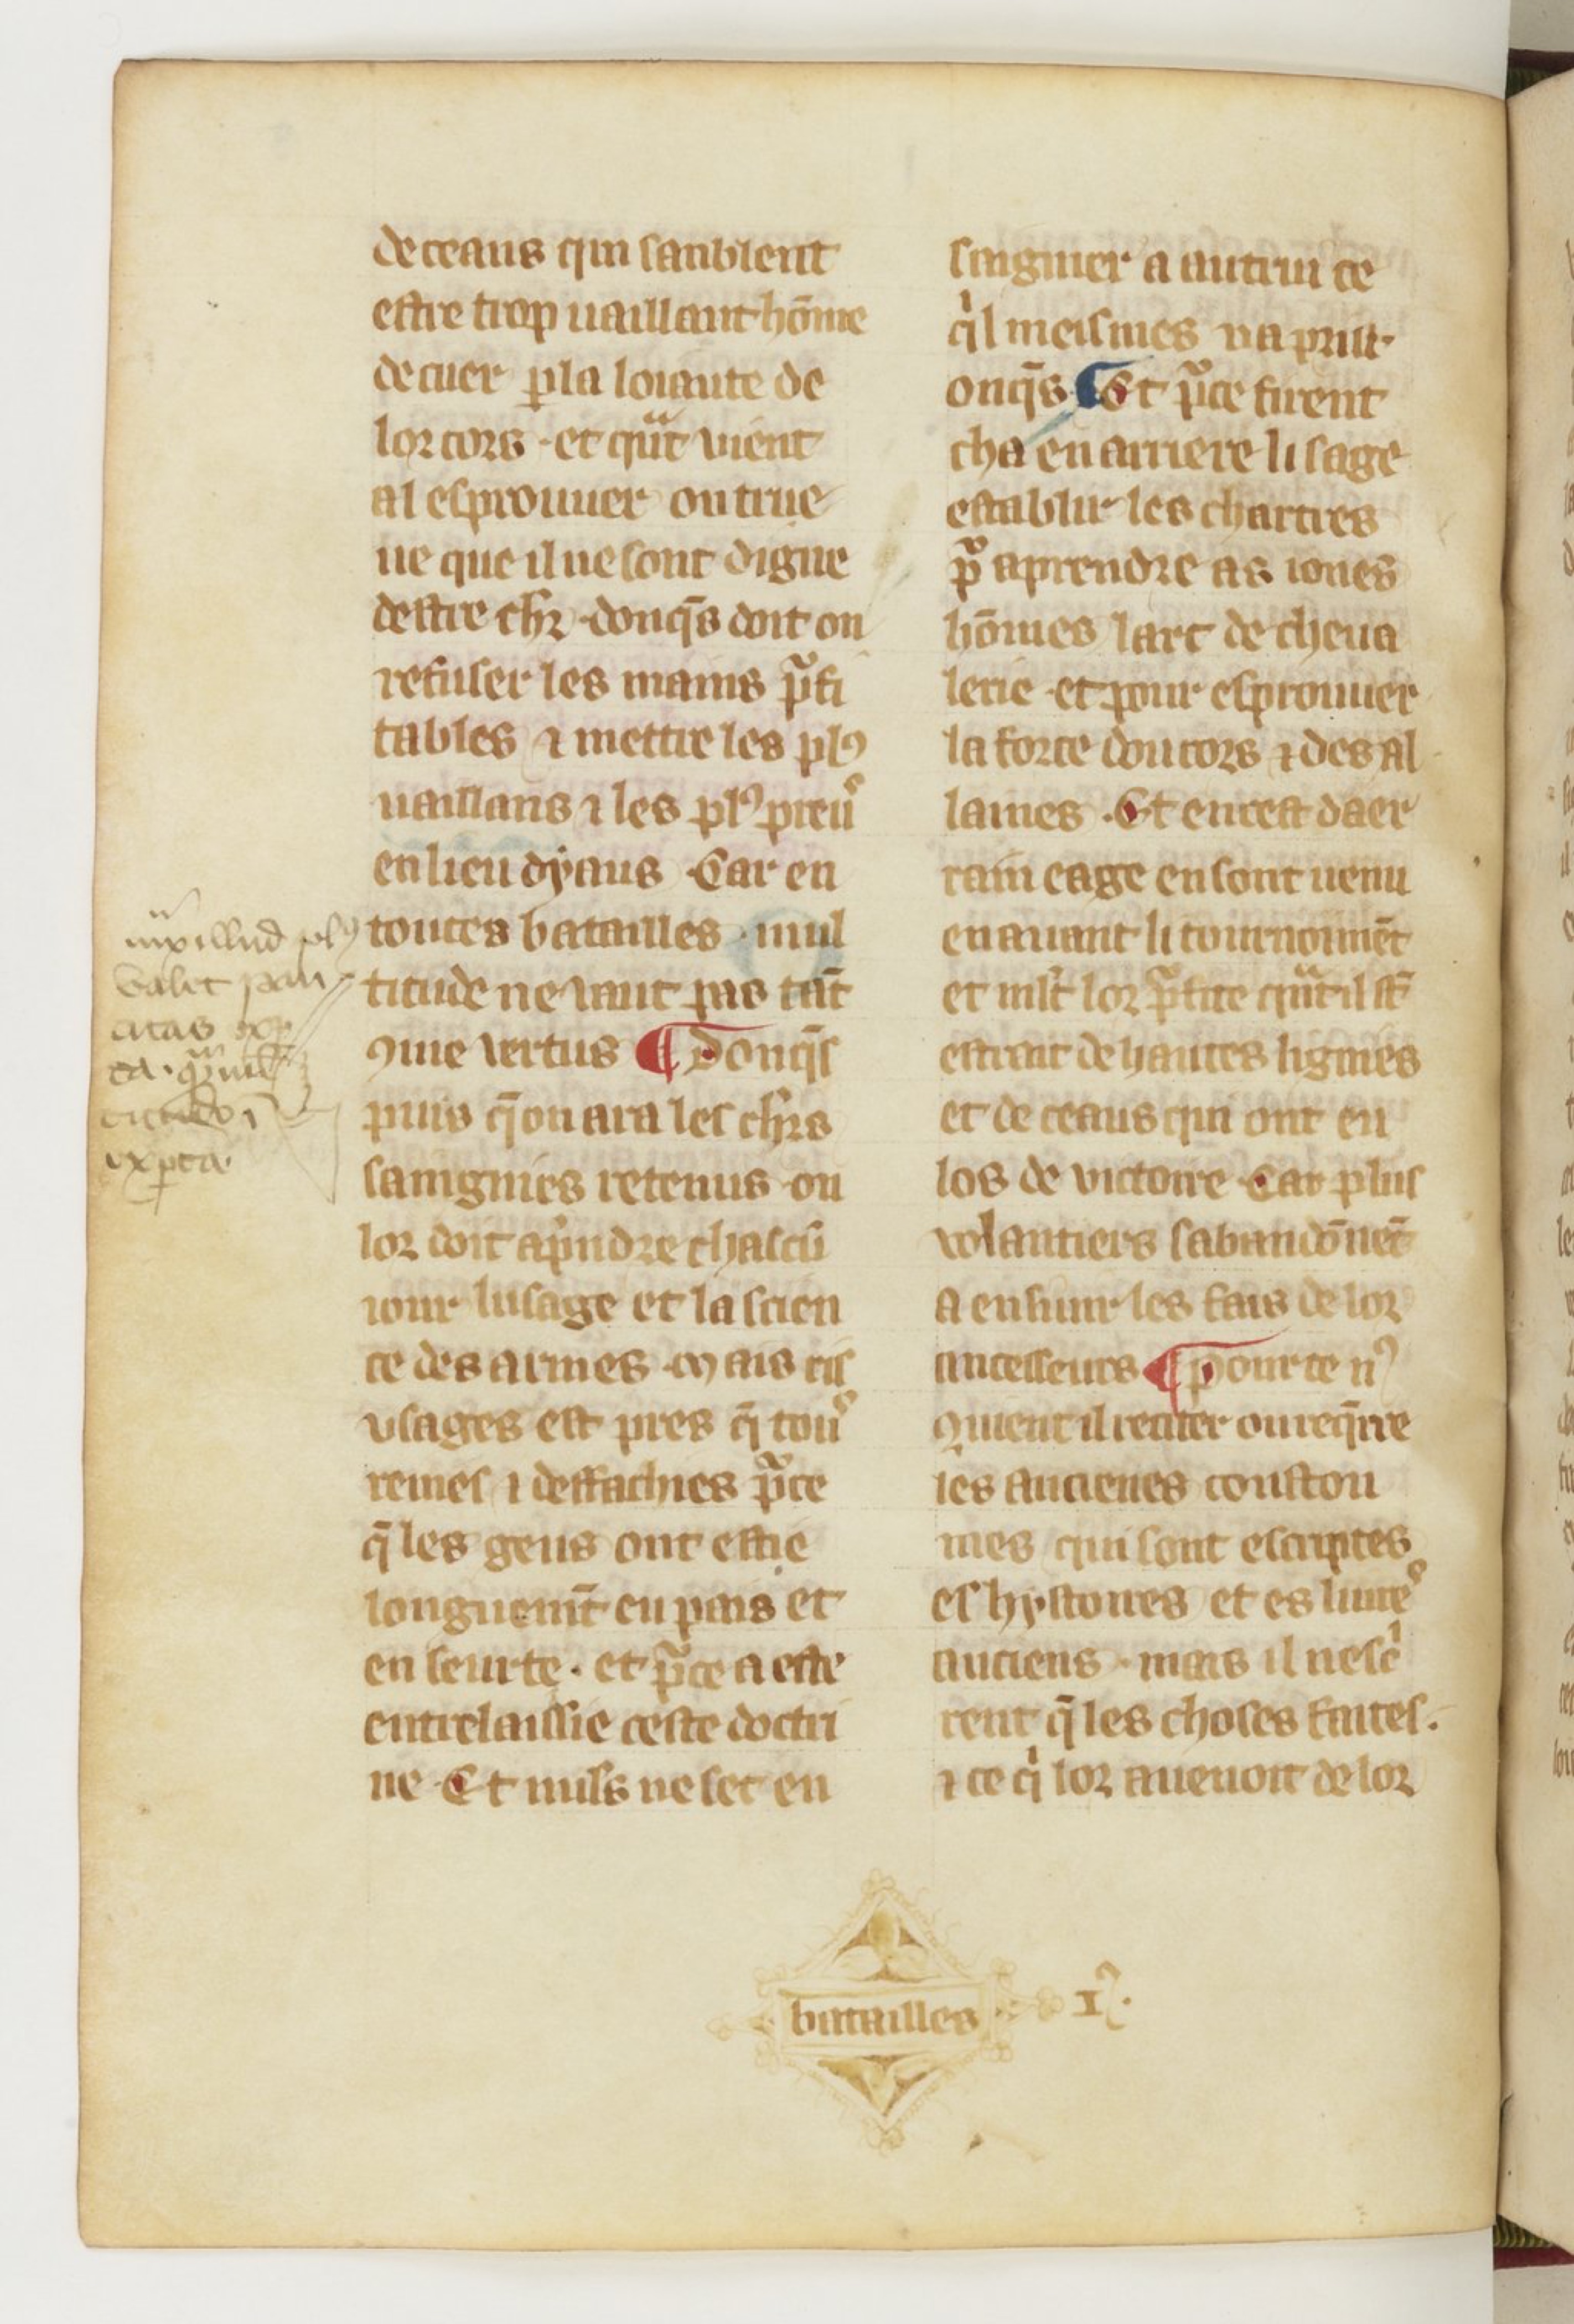 de ceaus qui sanblent
estre trop uaillant hōme
de cuer ꝑ la loiaute de
lor cors · et quāt vient
al esprouuer on true
ue que il ne sont digne
destre chr̄ · donq̄s doit on
refuser les mains ꝓfi
tables ⁊ mettre les plꝰ
uaillans ⁊ les plꝰ preuˢ
en lieu dyaus · Car en
toutes batailles · mul
titude ne vaut pas tāt
ꝯme vertus ¶ Donq̄s
puis q̄ on ara les chr̄s
sanigniés retenus · on
lor doit apᵉndre chascū
iour lusage et la scien
ce des armes · Mais cis
vsages est pres q̄ touˢ
remés ⁊ deffachies pᵒce
q̄ les gens ont estie
longuemt̄ en pais et
en seurte · et pᵒce a este
entrelaissie ceste doctri
ne · Et nuls ne set en
singnier a autrui ce
qⁱl meismes na prist·
onq̄s ¶ Et pᵒce firent
cha en arriere li sage
establir les chartres
pᵒ aprendre as iones
hōmes lart de cheua
lerie · et pour esprouuer
la force dou cors ⁊ des al
laines · Et en cest daer
rain eage en sont uenu
en auant li tournoimēt
et mlt̄ lor ꝓfite quāt il st̄
estrait de hautes lignies
et de ceaus qui ont eu
los de victoire · Car plus
volantiers sabandōnēt
a ensuir les fais de lor
ancesseurs ¶ Pour ce nꝰ
ꝯuient il reciter ou req̄rre
les ancienes coustou
mes qui sont escriptes
es hystoires et es liureˢ
anciens · mais il nescⁱ
rent q̄ les choses faites.
⁊ ce qⁱ lor auenoit de lor
valet pau
citas
batailles